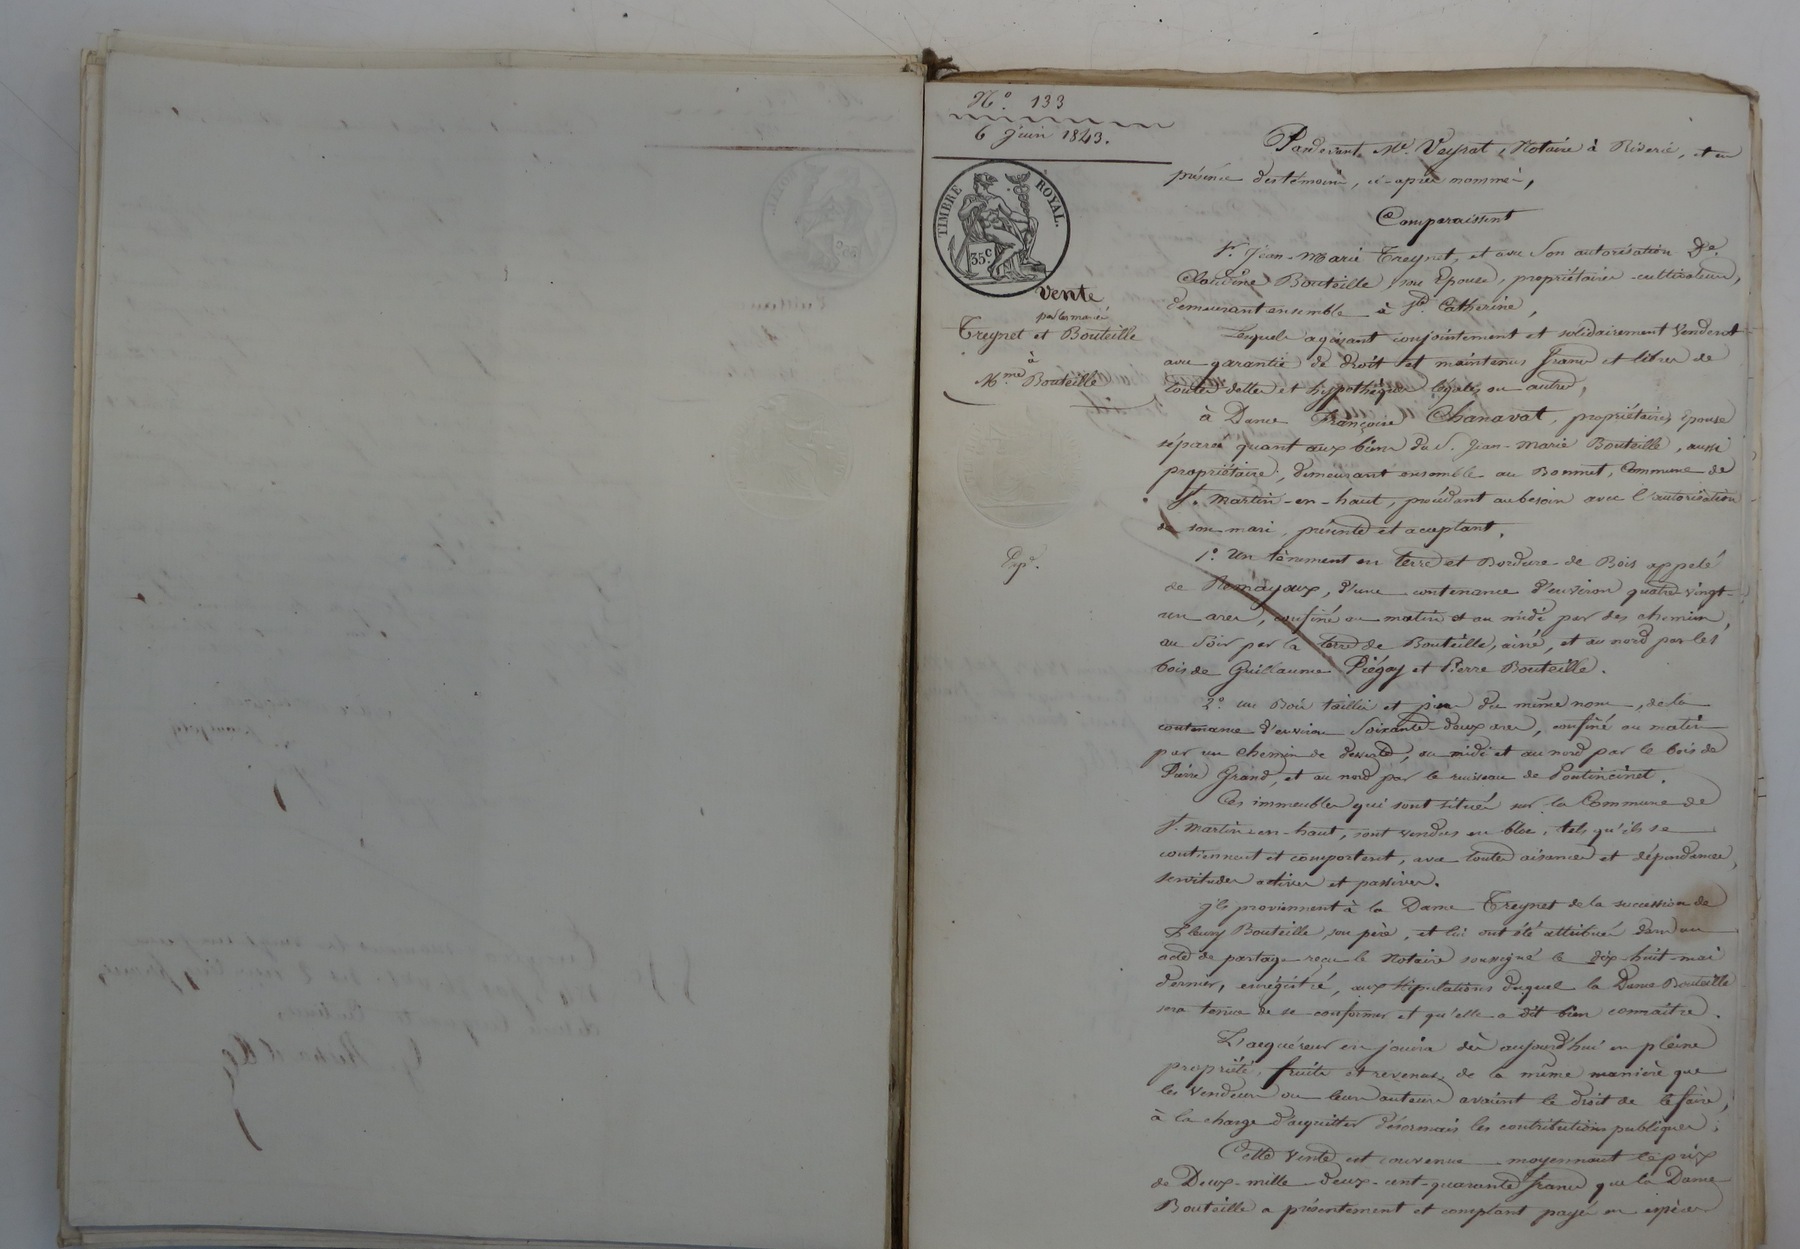 N.o 133
6 Juin 1843.
TIMBRE ROYAL.
35c.
Vente
par les mariés
Treynet et Bouteille
à
Mme Bouteille
Expé.
Pardevant Me. Veyrat, Notaire à Riverie, et en
présence des témoins, ci-après nommés,
Comparaissent
Sr. Jean-Marie Treynet, et avec son autorisation De.
Claudine Bouteille son Epouse, propriétaires-cultivateurs,
demeurant ensemble à Ste. Catherine,
Lesquels agissant conjointement et solidairement Vendent
avec garantie de droit et maintenus francs et libres de
toutes dettes et hypothèques légales ou autres,
à Dame Françoise Chanavat, propriétaire, Epouse
séparée quant aux biens du S. Jean-Marie Bouteille, aussi
propriétaire, demeurant ensemble au Bonnet, Commune de
St. Martin-en-haut, procédant au besoin avec l'autorisation
de son mari, présente et acceptant.
1.o Un tènement en terre et Bordure de Bois appelé
de d'une contenance d'environ quatre-vingt-
un ares, confiné au matin et au midi par des chemins,
au Soir par la terre de Bouteille, ainé, et au nord par les
bois de Guillaume Piégay et Pierre Bouteille.
2.o un Bois taillis et pins du même nom, de la
contenance d'environ Soixante-deux ares, confiné au matin
par un chemin de desserte, au midi et au nord par le bois de
Pierre Grand, et au nord par le ruisseau de
Ces immeubles qui sont situés sur la Commune de
St. Martin-en-haut, sont vendus en bloc, tels qu'ils se
contiennent et comportent, avec toutes aisances et dépendances,
servitudes actives et passives.
Ils proviennent à la Dame Treynet de la succession de
Fleury Bouteille son père, et lui ont été attribués dans un
acte de partage reçu le Notaire soussigné le dix-huit mai
dernier, enrégistré, aux stipulations duquel la Dame Bouteille
sera tenue de se conformer et qu'elle a dit bien connaître.
L'acquéreur en jouira dès aujourd'hui en pleine
propriété, fruits et revenus de la même manière que
les Vendeurs ou leurs auteurs avaient le droit de le faire,
à la charge d'acquitter désormais les contributions publiques.
Cette vente est convenue moyennant le prix
de Deux-mille-deux-cent-quarante francs que la Dame
Bouteille a présentement et comptant payé en espèces